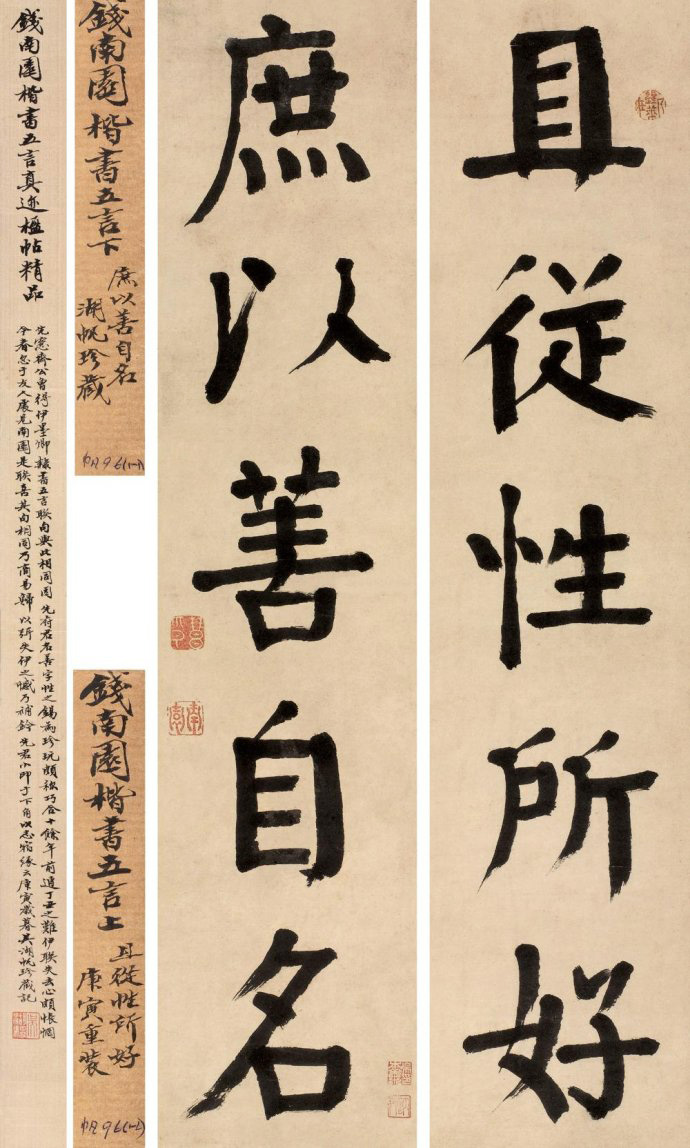 且從性所好
庶以善自名
錢南園楷書五言下
庶以善自名
湖帆珍藏
錢南園楷書五言上
且從性所好
庚寅重裝
錢南園楷書五言真迹楹帖精品
先愙齋公曾得伊墨卿隸書五言聯句與此相同因先府君名善字性之錫為珍玩頗稱巧合十餘年前遭丁丑之難伊聯失去心頗悵惘
今春忽于友人處見南園是聯喜其句相同乃商易歸以補失伊之憾乃補鈐先君小印于下角以志宿緣云庚寅歲暮吳湖帆珍藏記